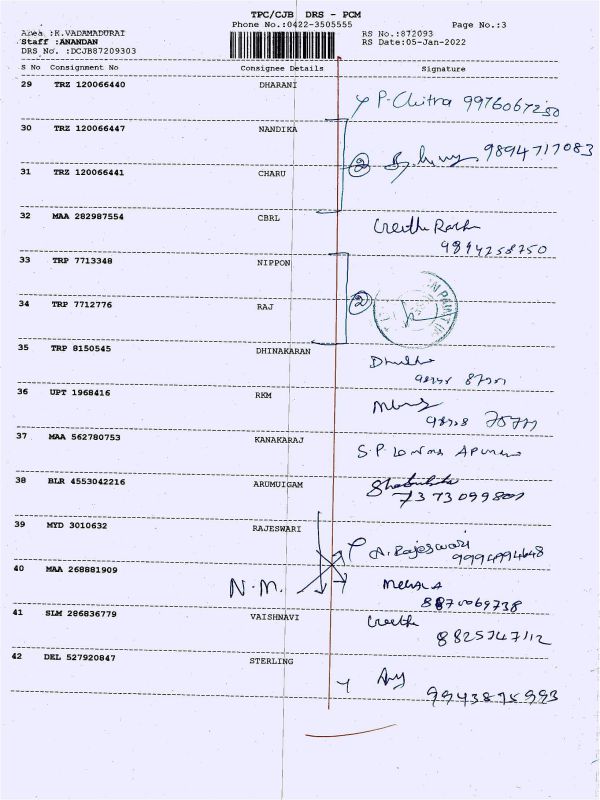 TPC/CJB DRS - PCM
Phone No.:0422-3505555 Page No.:3
Area :K.VADAMADURAI RS No.:872093
Staff :ANANDAN RS Date:05-Jan-2022
DRS No. :DCJB87209303
S No Consignment No Consignee Details Signature
29 TRZ 120066440 DHARANI
P. Chitra 9976067250
30 TRZ 120066447 NANDIKA
2 9894717083
31 TRZ 120066441 CHARU
32 MAA 282987554 CBRL
33 TRP 7713348 NIPPON
34 TRP 7712776 RAJ
2
35 TRP 8150545 DHINAKARAN
36 UPT 1968416 RKM
37 MAA 562780753 KANAKARAJ
S.P.
38 BLR 4553042216 ARUMUIGAM
39 MYD 3010632 RAJESWARI
A. Rajeswari
40 MAA 268881909
N.M. MEHALA
8870069738
41 SLM 286836779 VAISHNAVI
8825747112
42 DEL 527920847 STERLING